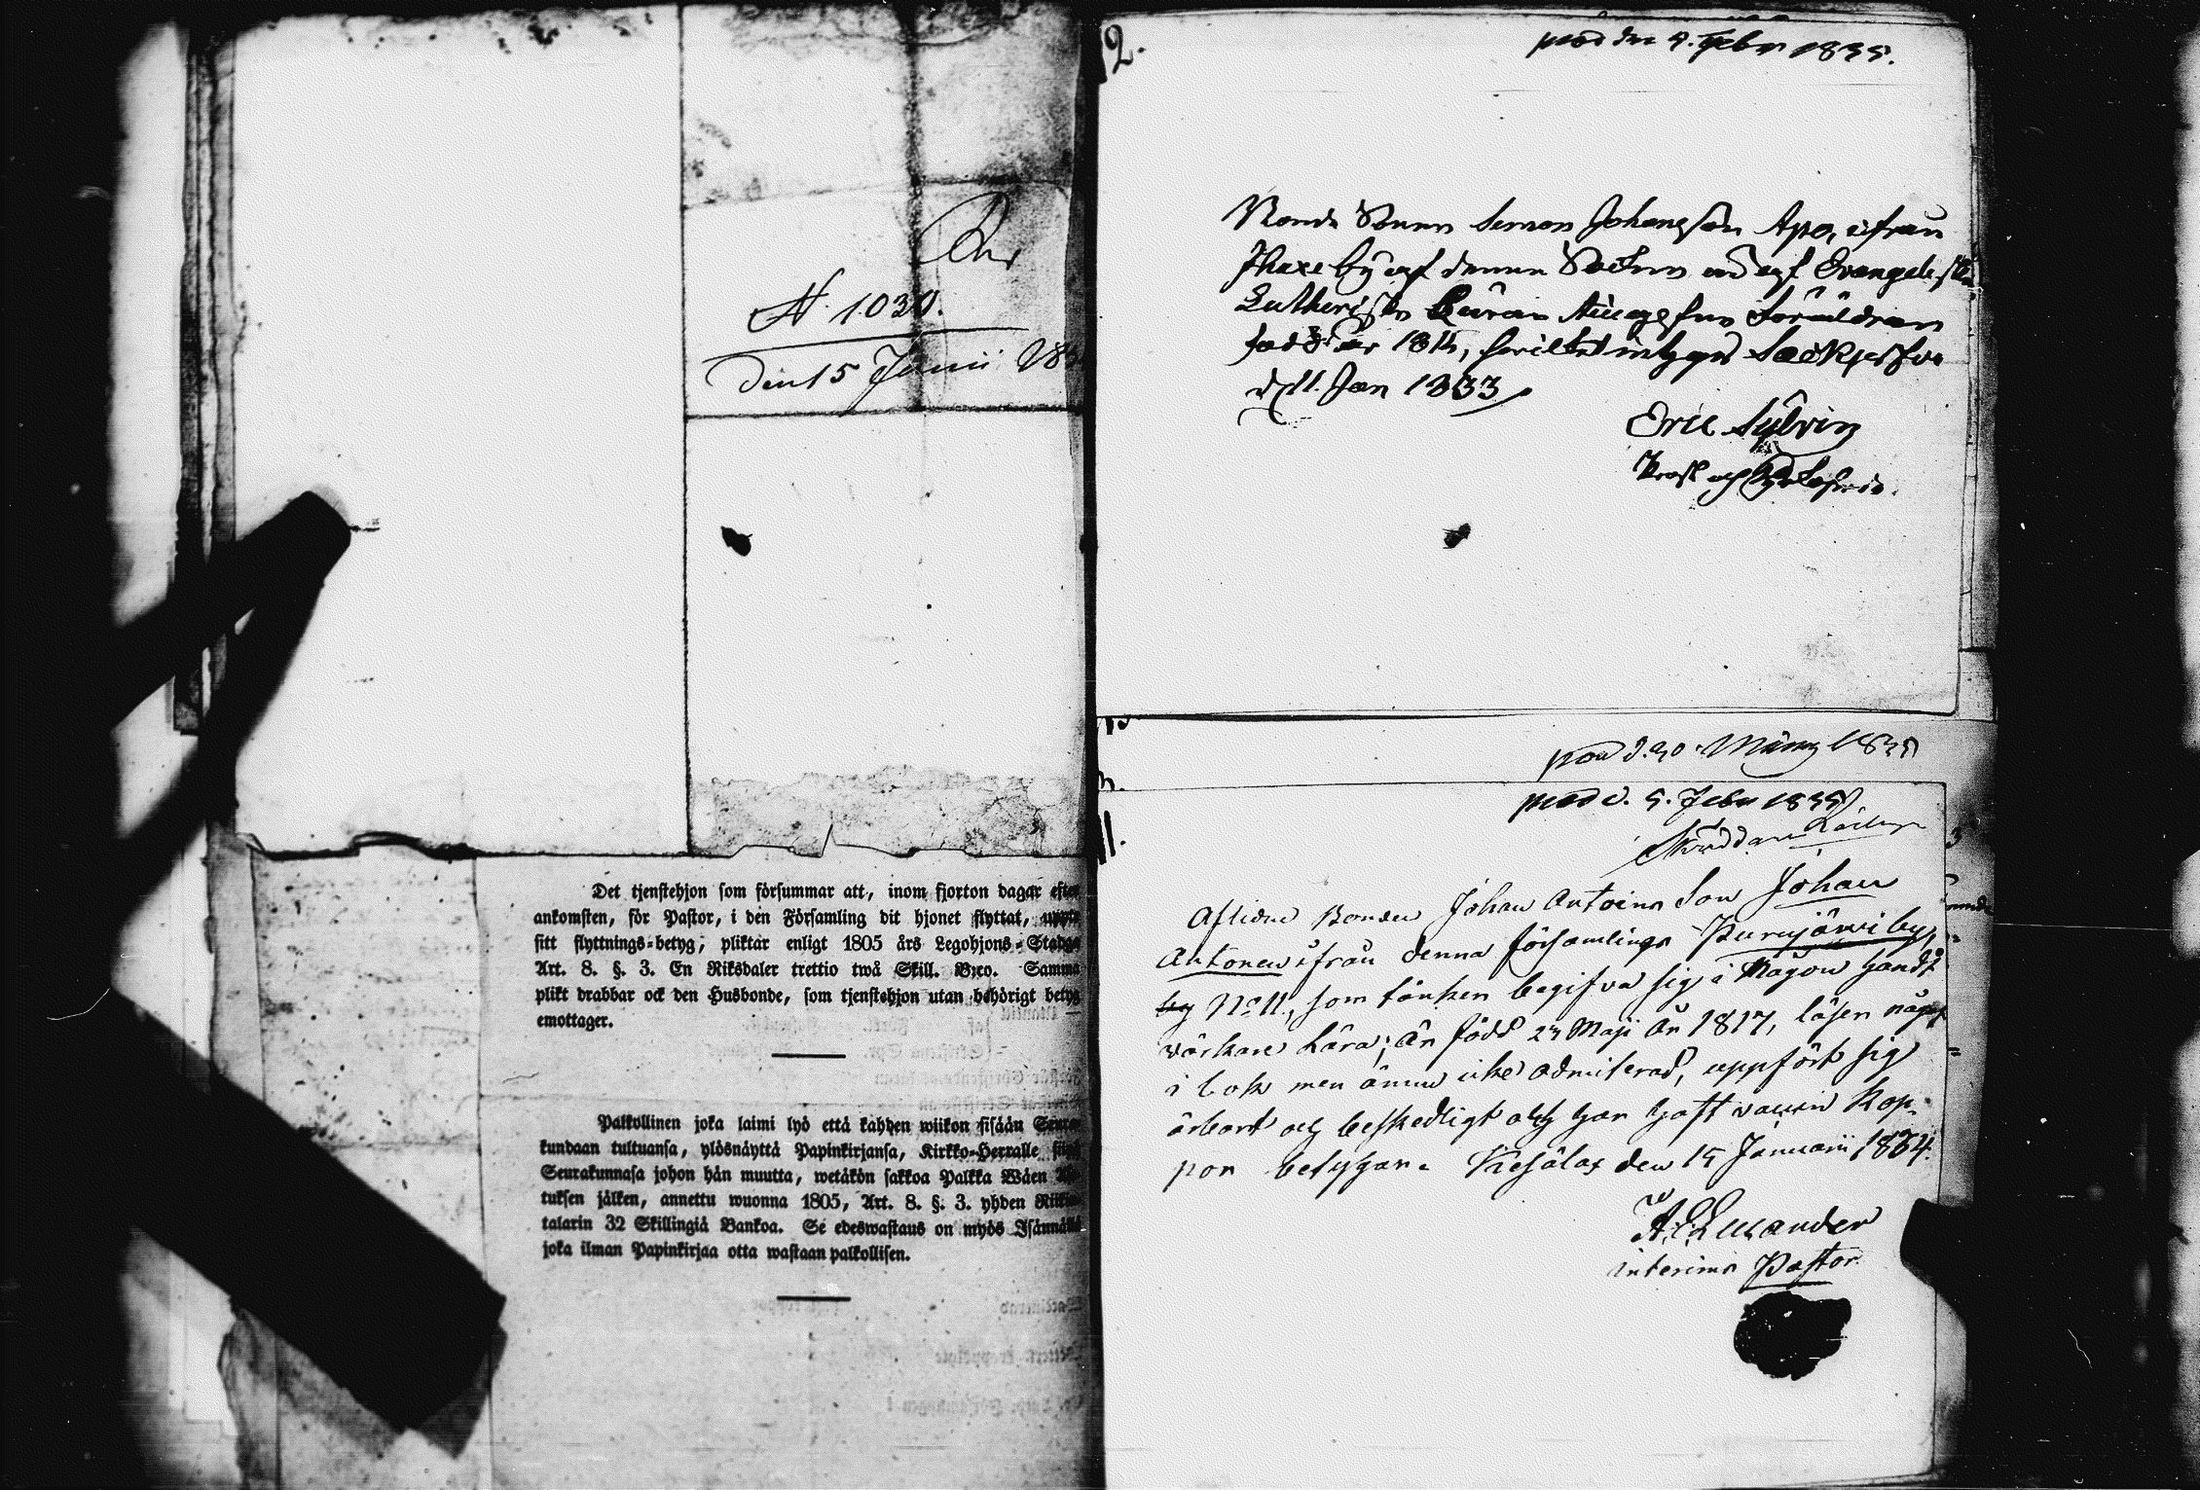 N. 1030.
den 15 Junii 183
Det tjenstehjon som försummar att, inom fjorton dagar efter
ankomsten, för Pastor, i den Församling dit hjonet flyttat,
sitt flyttnings-betyg, pliktar enligt 1805 års Legohjons-Stadga
Art. 8. §. 3. En Riksdaler trettio twå Skill. Bco. Samma
plikt drabbar ock den Husbonde, som tjenstehjon utan behörigt betyg
emottager.
Palkollinen joka laimi lyö että kahden wiikon sisään Seura-
kundaan tultuansa, ylösnäyttä Papinkirjansa, Kirkko-Herralle
Seurakunnasa johon hän muutta, wetäkön sakkoa Palkka Wäen
tuksen jälken, annettu wuonna 1805, Art. 8. §. 3. yhden Riks-
talarin 32 Skillingiä Bankoa. Se edeswastaus on myös Isännällä
joka ilman Papinkirjaa otta wastaan palkollisen.
12.
prod den 9. Febr 1835.
Bonde Sonen Simon Johansson Apo, ifrån
by af denna Socken ad af Evangeliskt
Lutheriska Läran Föräldrar
född år 1815,
d 11. Jan 1833
Eric
Prost och Kyrkoherde.
prod d. 30. Märtz 1835
prod d. 9. Febr 1835
11.
Skräddare
Aflidne Bonden Johan Antoines Son Johan
Antonen ifrån denna församlings Purujärwi by,
by No 11, som tänker begifva sig i någon handt
värkare Lära; är född 23 Maji År 1817, läser något
i bok men ännu icke admiterad, uppfört sig
ärbart och beskedligt och har haft vaccin Kop-
por betygar. Kesälax den 15 Januarii 1834.
interims Pastor